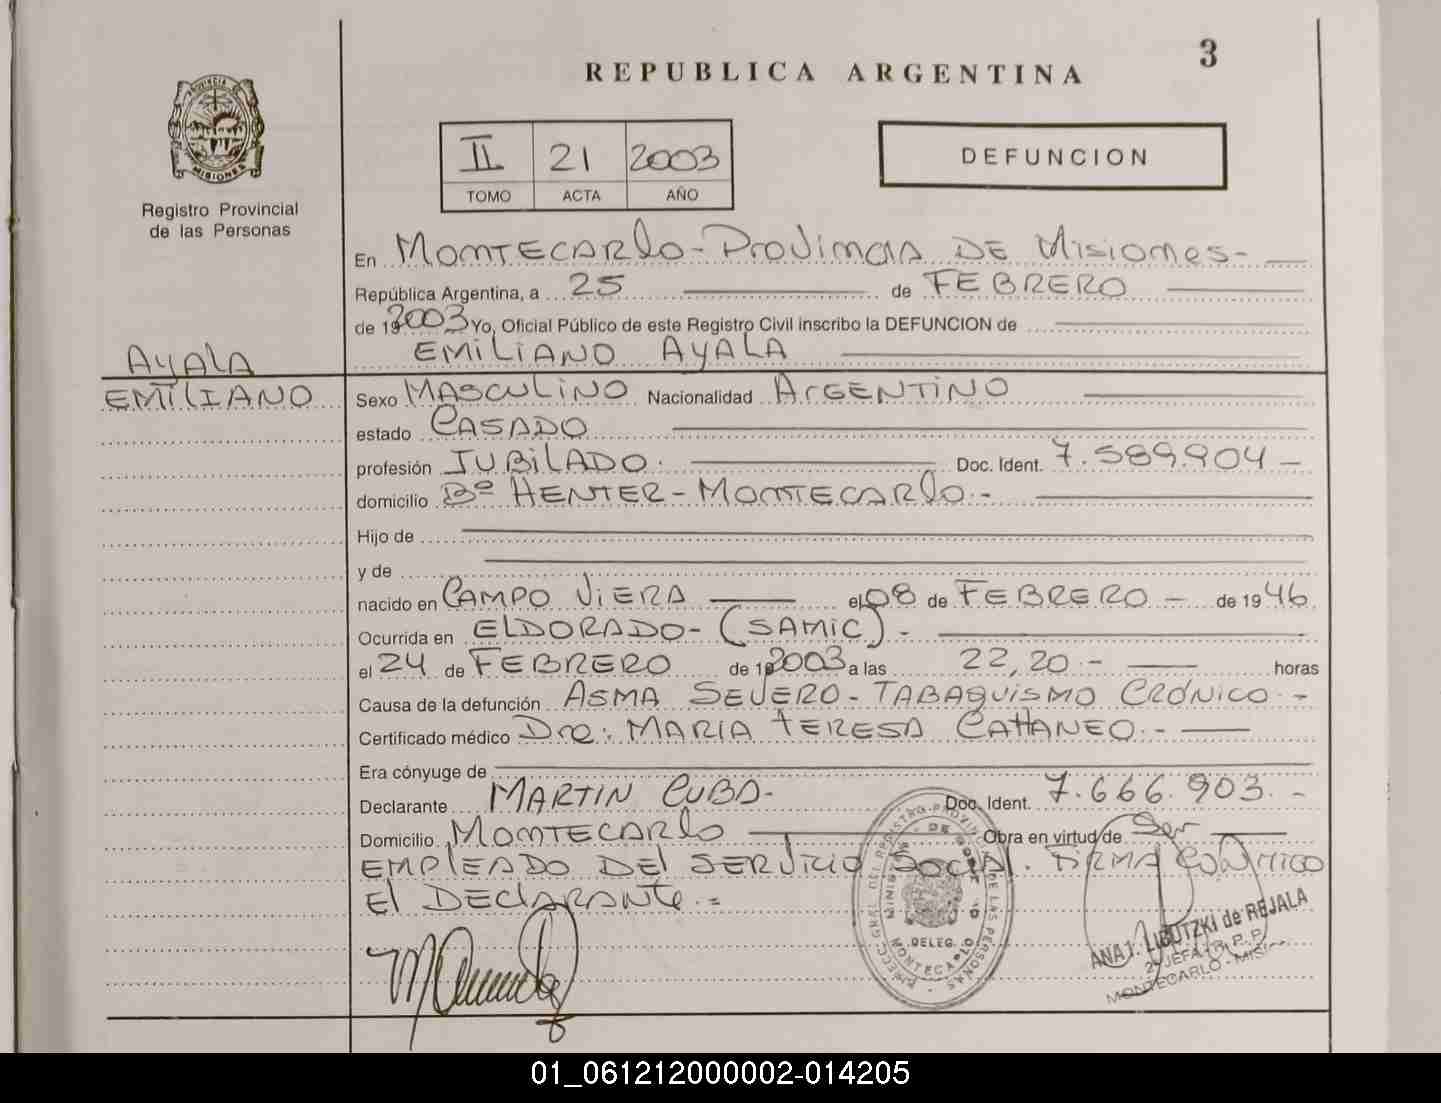 3
REPUBLICA ARGENTINA
PROVINCIA DE
MISIONES
Registro Provincial
de las Personas
II 21 2003
TOMO ACTA AÑO
DEFUNCION
En MONTECARLO - PROVINCIA DE MISIONES -
República Argentina, a 25 de FEBRERO
de 19 2003 Yo, Oficial Público de este Registro Civil inscribo la DEFUNCION de
EMILIANO AYALA
AYALA
EMILIANO
Sexo MASCULINO Nacionalidad ARGENTINO
estado CASADO
profesión JUBILADO. Doc. Ident. 7.589.904 -
domicilio Bº HENTER - MONTECARLO. -
Hijo de
y de
nacido en CAMPO VIERA el 08 de FEBRERO - de 19 46
Ocurrida en ELDORADO - (SAMIC) -
el 24 de FEBRERO de 19 2003 a las 22,20 - horas
Causa de la defunción ASMA SEVERO - TABAQUISMO CRÓNICO -
Certificado médico Dra: MARIA TERESA CATTANEO -
Era cónyuge de
Declarante MARTIN CUBA - Doc. Ident. 7.666.903. -
Domicilio MONTECARLO Obra en virtud de Ser
EMPLEADO DEL SERVICIO SOCIAL. FIRMA CONMIGO
El DECLARANTE. =
DIRECC. GRAL. DEL REGISTRO PROVINCIAL DE LAS PERSONAS
DELEG.
MONTECARLO
ANA I. LIBUTZKI de REJALA
MONTECARLO - MIS.
01_061212000002-014205